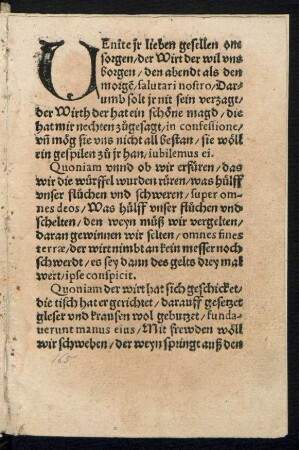 VEnite jr lieben gesellen one
sorgen/der Wirt der wil vns
borgen/den abendt als den
morgẽ/salutari nostro/Dar-
umb solt jr nit sein verzagt/
der Wirth der hat ein schöne magd/die
hat mir nechten zůgesagt/in confessione/
vñ mög sie vns nicht all bestan/sie wöll
jr gespilen zů jr han/iubilemus ei.
Quoniam vnnd ob wir erfüren/das
wir die würffel wurden rüren/was hülff
vnser flüchen vnd schweren/super om-
nes deos/Was hülff vnser flüchen vnd
schelten/den weyn můß wir vergelten/
daran gewinnen wir selten/omnes fines
terræ/der wirt nimbt an kein messer noch
schwerdt/es sey dann des gelts drey mal
wert/ipse conspicit.
Quoniam der wirt hat sich geschicket/
die tisch hat er gerichtet/darauff gesetzet
gleser vnd krausen wol gebutzet/funda-
uerunt manus eius/Mit frewden wöll
wir schweben/der weyn springt auß den
165